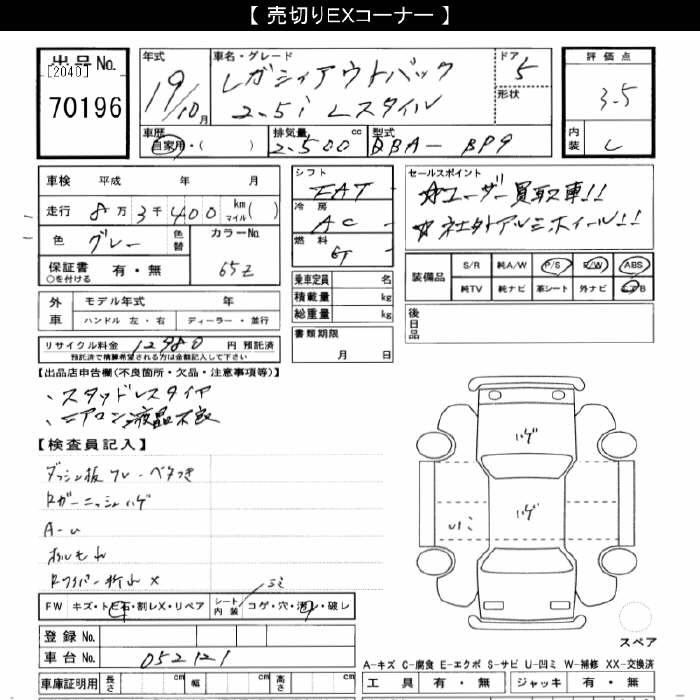 【 売切りEXコーナー 】
出品 No.
[2040]
70196
年式
19/10月
車名・グレード
レガシィアウトバック
2.5i Lスタイル
ドア
5
形状
評価点
3.5
内装
C
車歴
自家用・( )
排気量 cc
2.500
型式
DBA- BP9
車検 平成 年 月
走行 8万 3千 400 km マイル( )
色 グレー 色替
カラーNo.
65Z
保証書 有・無
○を付ける
外車
モデル年式 年
ハンドル 左・右 ディーラー・並行
リサイクル料金 12980 円 預託済
預託済で精算希望される方は金額記入して下さい
シフト
FAT
冷房
AC
燃料
乗車定員 名
積載量 kg
総重量 kg
書類期限
月 日
セールスポイント
☆ユーザー買取車!!
☆社外アルミホイール!!
装備品
S/R 純A/W P/S P/W ABS
純TV 純ナビ 革シート 外ナビ エアB
後日品
【出品店申告欄(不良箇所・欠品・注意事項等)】
、スタッドレスタイヤ
、エアコン液晶不良
【検査員記入】
ダッシュ板 ワレ・ベタつき
Rガーニッシュハゲ
A-U
Rワイパー折れ X
ハゲ
ハゲ
FW キズ・トビ石・割レX・リペア
シート内装 コゲ・穴・汚レ・破レ
登録 No.
車台 No. 052121
車庫証明用 長さ cm 幅 cm 高さ cm
スペア
A-キズ C-腐食 E-エクボ S-サビ U-凹ミ W-補修 XX-交換済
工具 有・無 ジャッキ 有・無